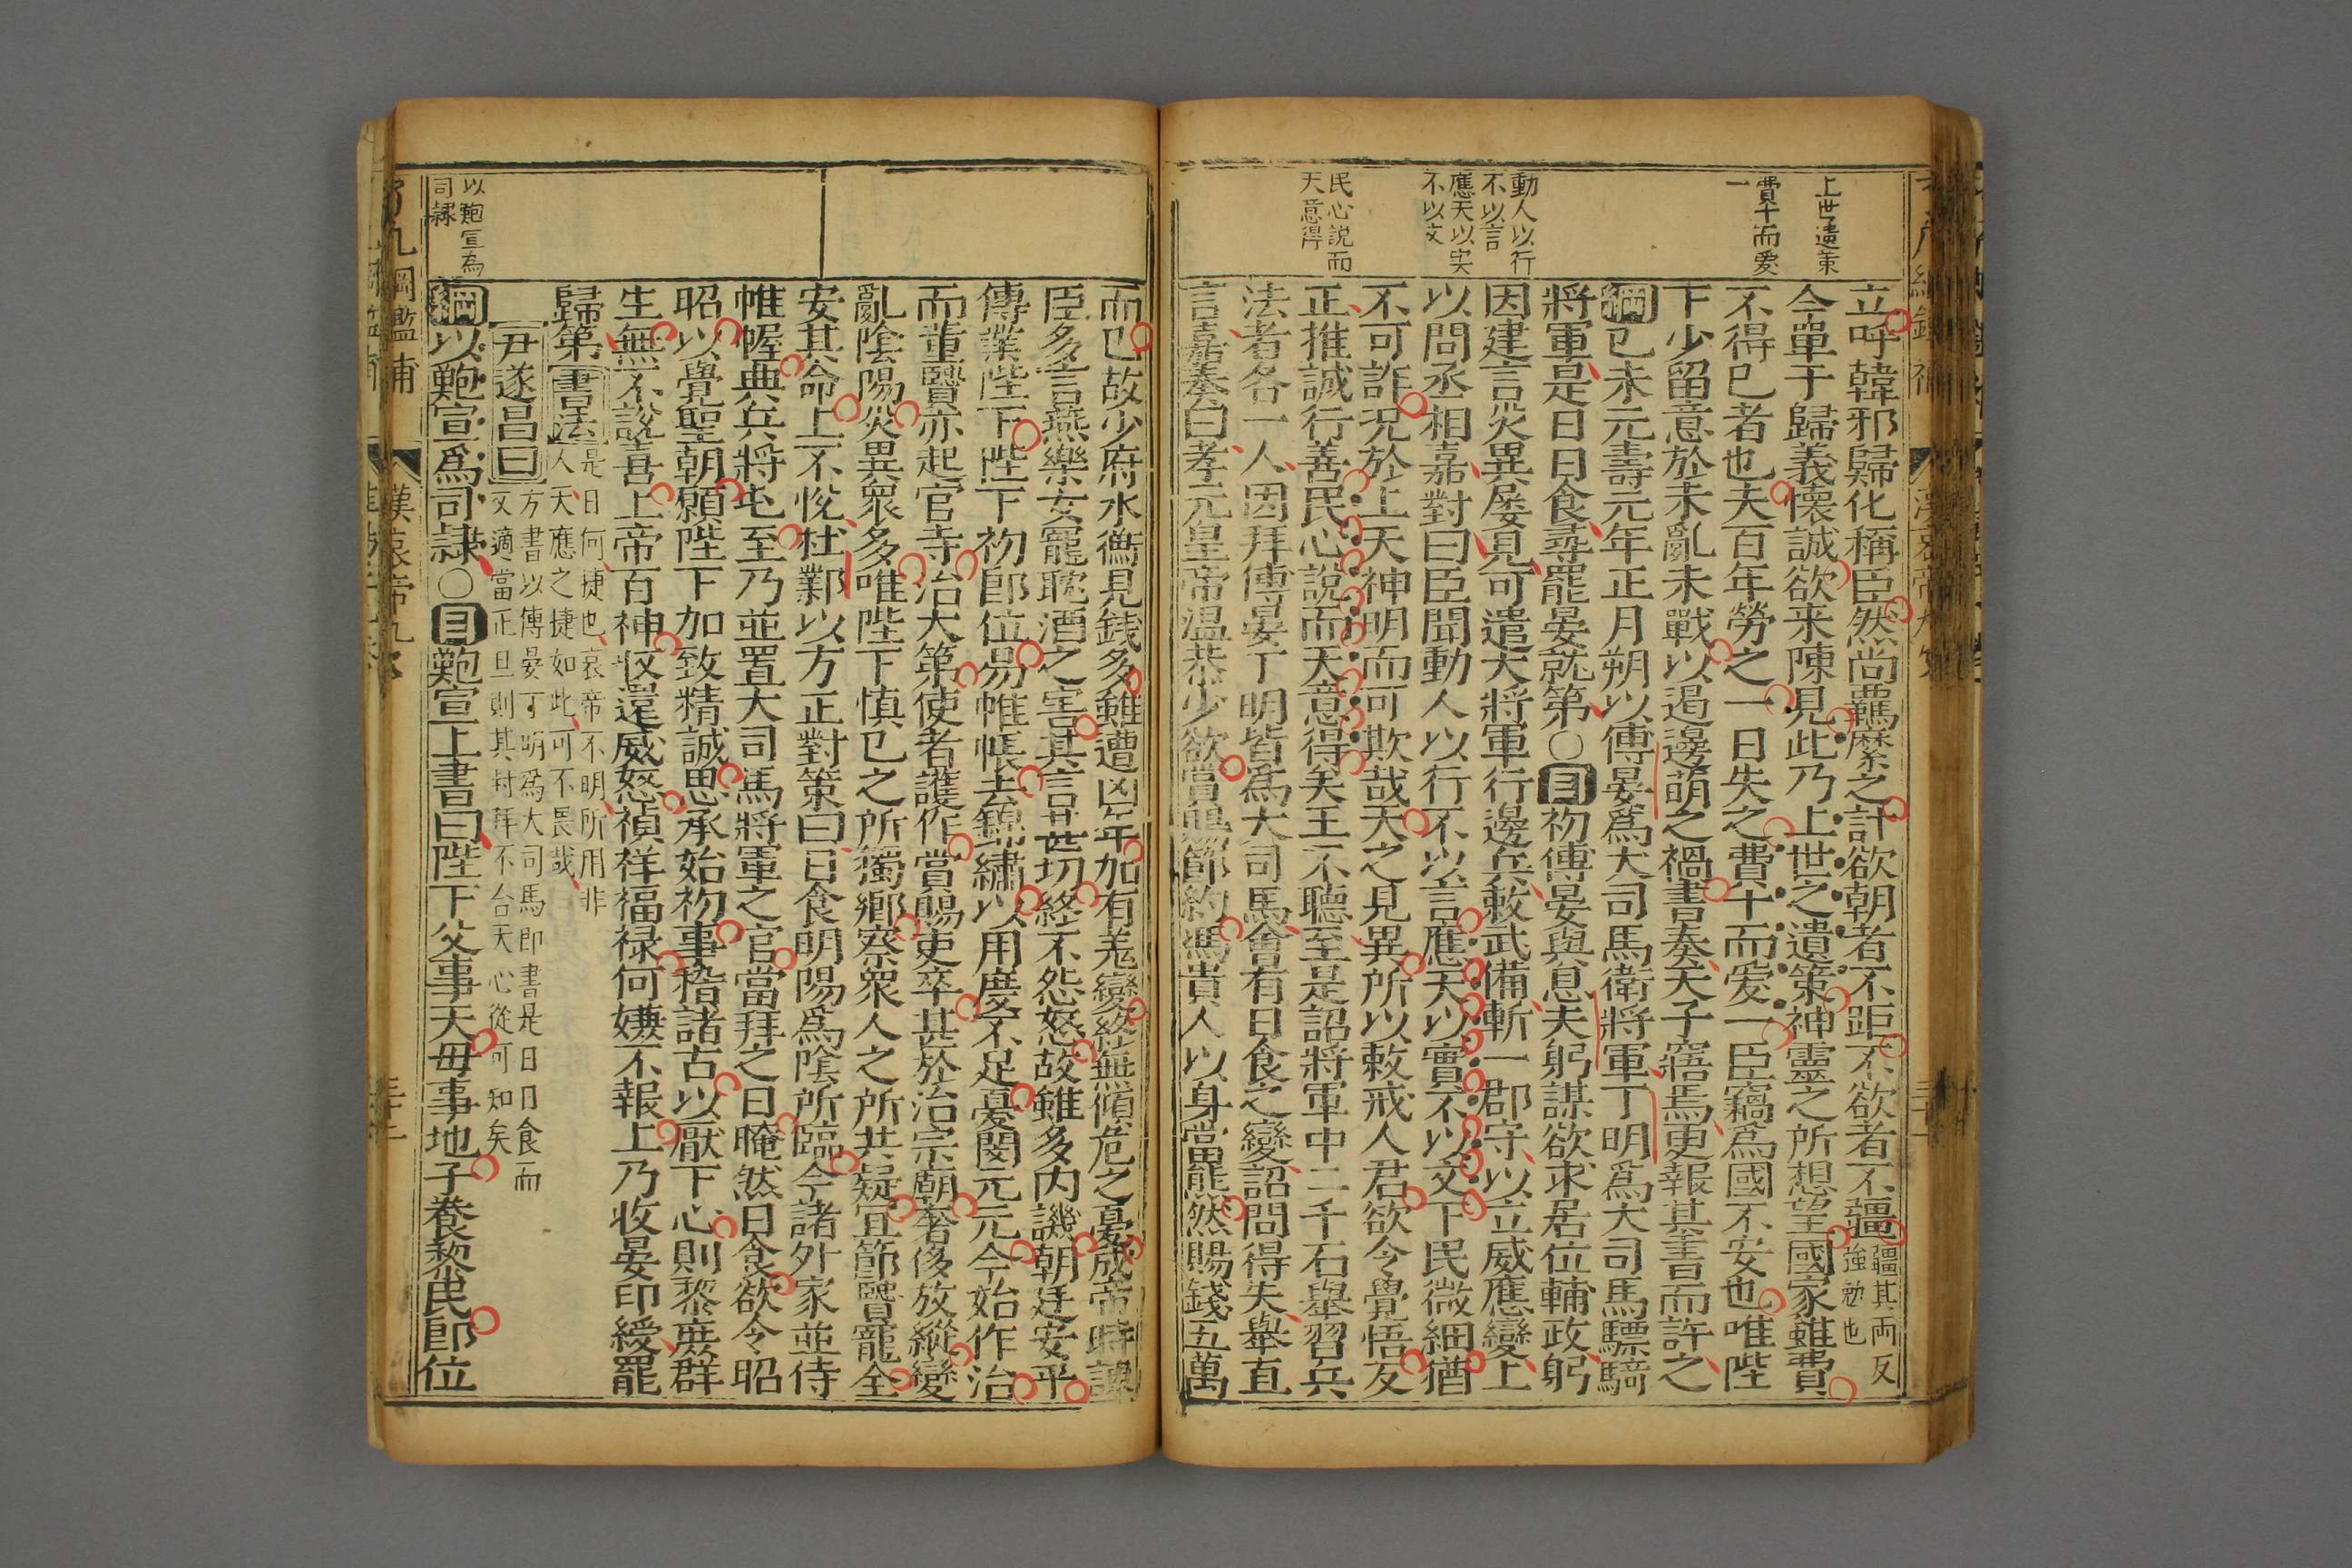 上世遺策
費十而愛
一
動人以行
不以言
應天以实
不以文
民心説而
天意得
立呼韓邪歸化稱臣然尚羈縻之計欲朝者不距不欲者不彊彊其兩反強勉也
今單于歸義懷誠欲来陳見此乃上世之遺策神靈之所想望國家雖費
不得已者也夫百年勞之一日失之費十而爱一臣竊爲國不安也唯陛
下少留意於未亂未戰以遏邊萌之禍書奏天子寤焉更報其書而許之
綱已未元壽元年正月朔以傅晏爲大司馬衛將軍丁明爲大司馬驃騎
將軍是日日食尋罷晏就第○目初傅晏與息夫躬謀欲求居位輔政躬
因建言災異屡見可遣大將軍行邊兵敕武備斬一郡守以立威應變上
以問丞相嘉對曰臣聞動人以行不以言應天以實不以文下民微細猶
不可詐况於上天神明而可欺哉天之見異所以敕戒人君欲令覺悟反
正推誠行善民心說而天意得矣王不聽至是詔將軍中二千石舉習兵
法者各一人因拜傅晏丁明皆爲大司馬會有日食之變詔問得失舉直
言嘉奏曰孝元皇帝温恭少欲賞賜節約馮貴人以身當熊然賜錢五萬
而已故少府水衡見錢多雖遭凶年加有羌變終無傾危之憂成帝時諫
臣多言燕樂女寵耽酒之害其言甚切終不怨怒故雖多内譏朝廷安平
傳業陛下陛下初卽位易帷帳去錦繡以用度不足憂閔元元今始作治
而董賢亦起官寺治大第使者護作賞賜吏卒甚於治宗廟奢侈放縱變
亂陰陽災異衆多唯陛下慎已之所獨鄕察衆人之所共疑宜節賢寵全
安其命上不悅杜鄴以方正對策曰日食明陽爲陰所臨今諸外家並侍
帷幄典兵將屯至乃並置大司馬將軍之官當拜之日晻然日食欲令昭
昭以覺聖朝願陛下加致精誠思承始初事稽諸古以厭下心則黎庶群
生無不說喜上帝百神收還威怒禎祥福禄何嫌不報上乃收晏印綬罷
歸第書法是日何捷也哀帝不明所用非人天應之捷如此可不畏哉
尹遂昌曰方書以傅晏丁明爲大司馬即書是日日食而又適當正旦則其封拜不合天心從可知矣
以鮑宣為
司隸
綱以鮑宣爲司隷○目鮑宣上書曰陛下父事天毋事地子養黎民卽位